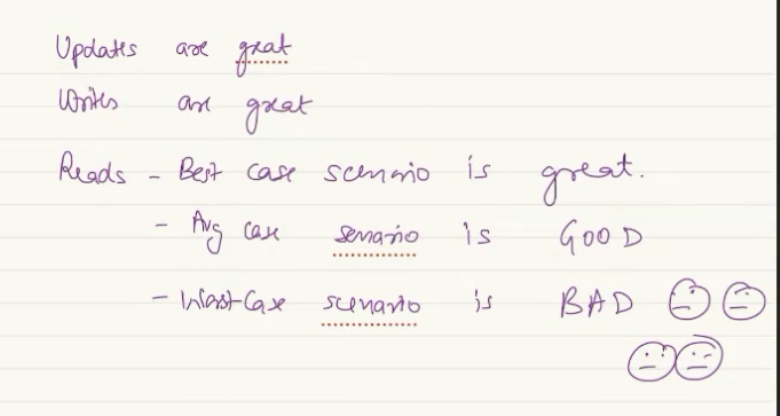 Updates are great
Writes are great
Reads - Best case scenario is great.
- Avg case senario is GOOD
- Worst-Case scenario is BAD